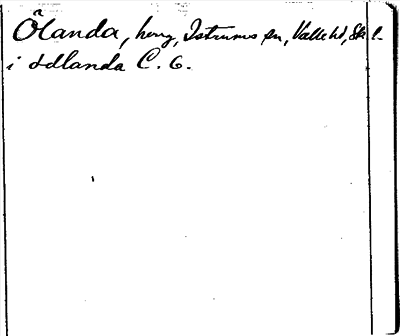 Ölanda, hmg, Istrums sn, Valle hd, Sk l.
i Odlanda C. 6.